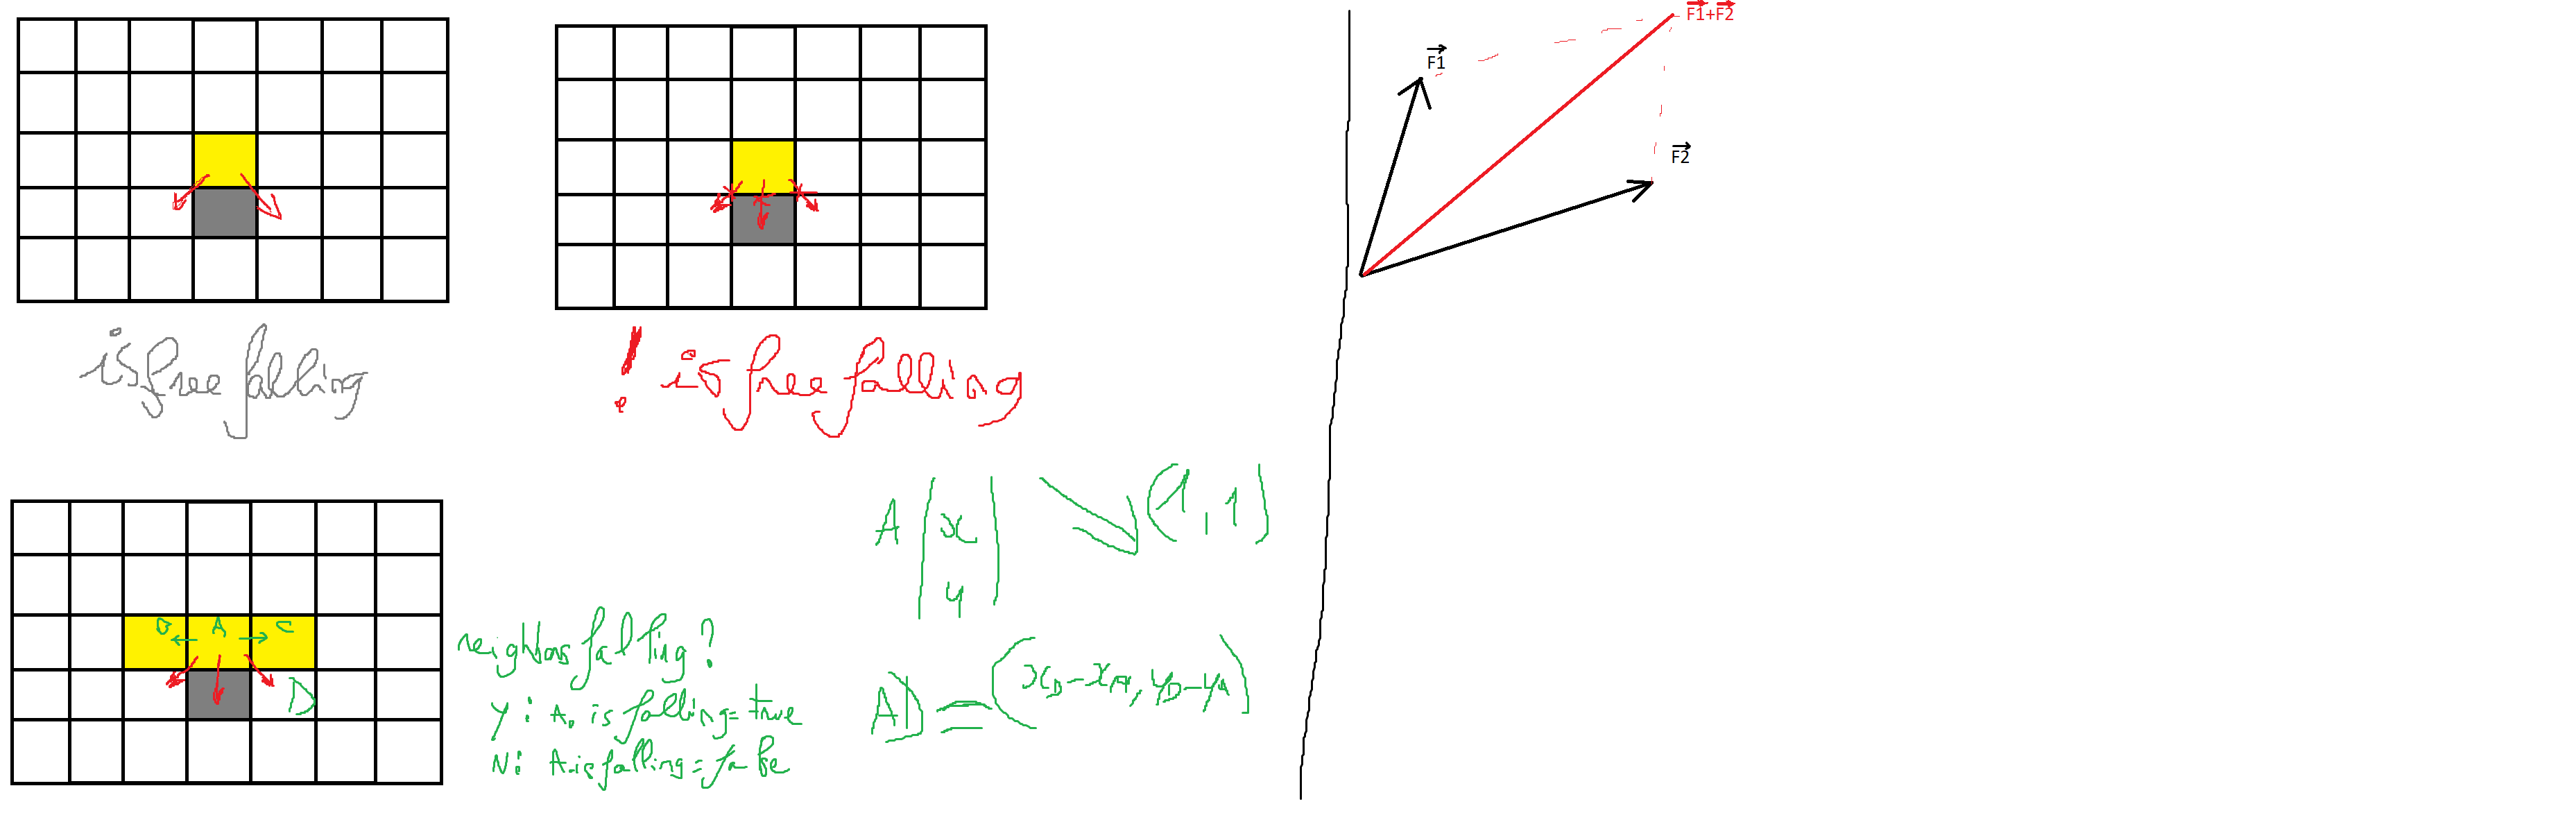 is free falling
! is free falling
F1+F2
F1
F2
B A C
D
neighbors falling?
Y: A. is falling = true
N: A.is falling = false
A x y (1, 1)
AD = (xD-xA, yD-yA)